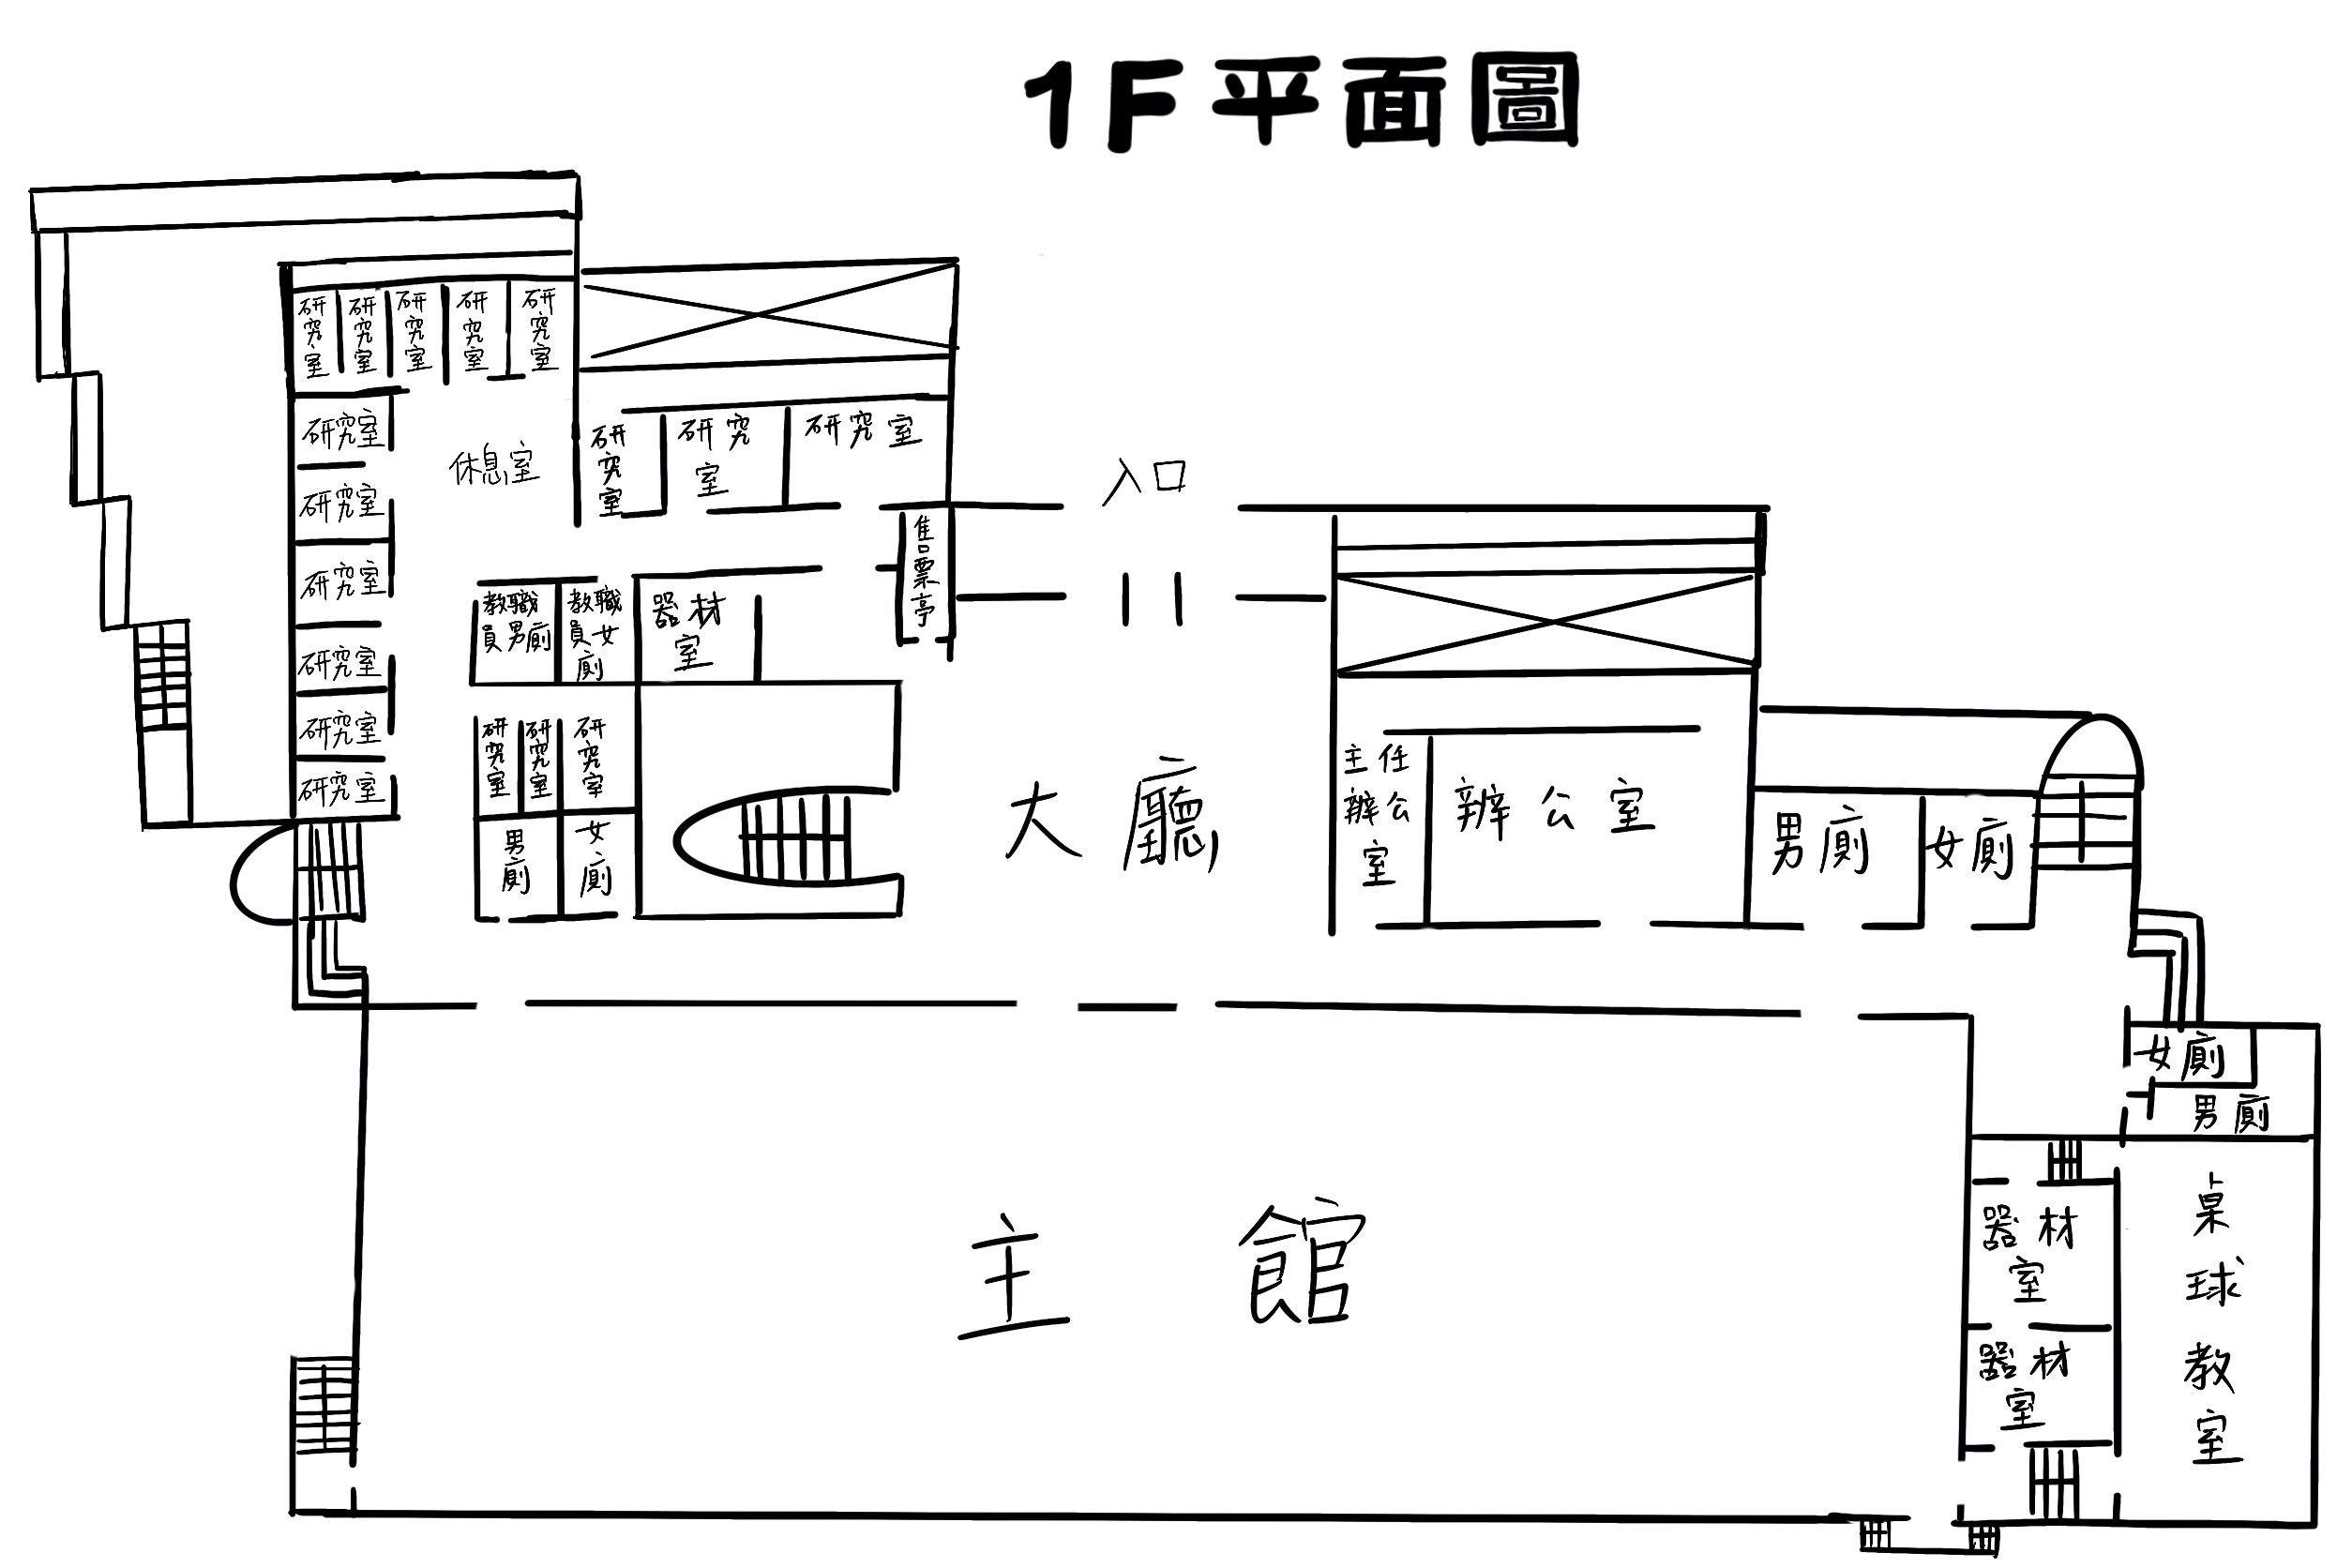 1F平面圖
研究室
研究室
研究室
研究室
研究室
研究室
研究室
研究室
研究室
研究室
研究室
休息室
研究室
研究
室
研究室
入口
售票亭
教職
員男廁
教職
員女
廁
器材
室
研究室
研究室
研究室
男廁
女廁
大廳
主任
辦公
室
辦公室
男廁
女廁
女廁
男廁
主館
器材
室
器材
室
桌球教室